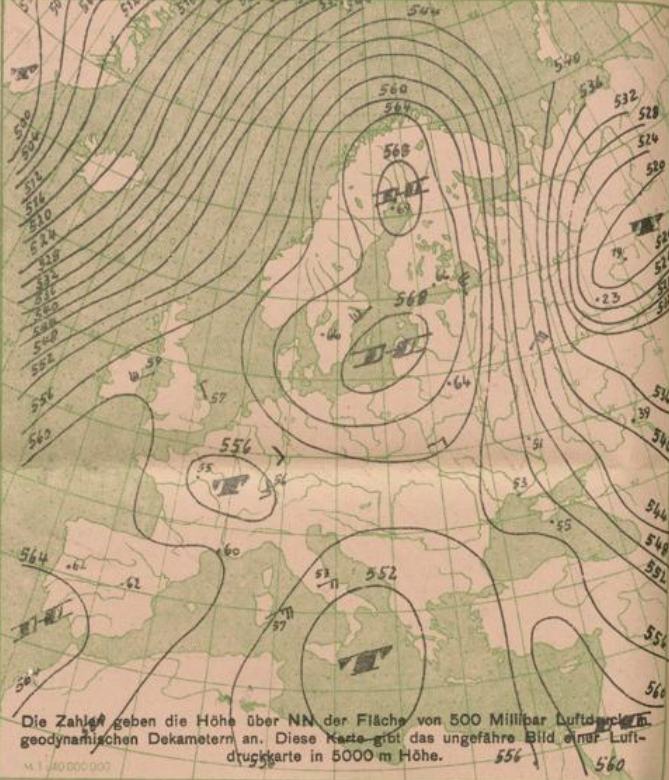 544
540
536
532
528
524
520
560
564
568
69
500
504
512
516
520
524
528
532
536
540
544
548
552
556
560
568
66
64
19
23
59
57
39
51
53
55
556
55
54
60
564
62
62
53
552
57
544
548
552
556
560
Die Zahlen geben die Höhe über NN der Fläche von 500 Millibar Luftdruck in
geodynamischen Dekametern an. Diese Karte gibt das ungefähre Bild einer Luft-
druckkarte in 5000 m Höhe.
M. 1:40000000
556
560